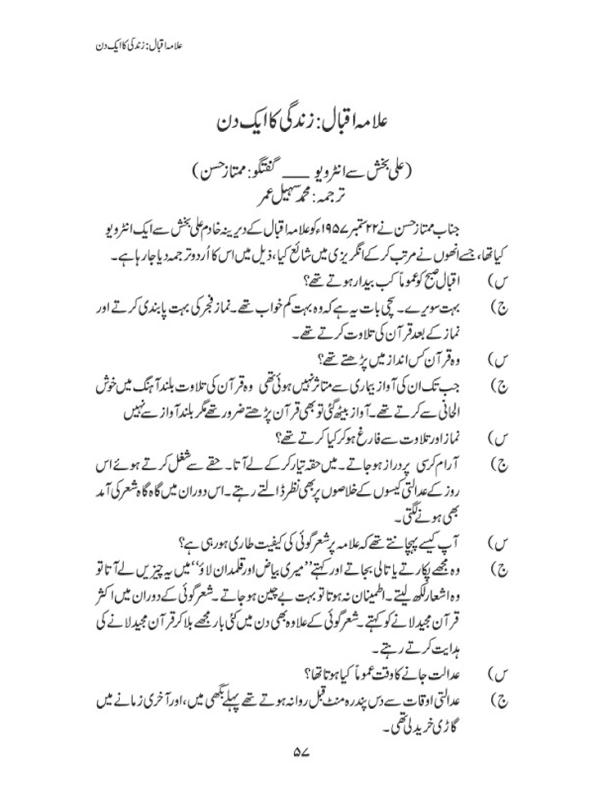 علامہ اقبال: زندگی کا ایک دن
علامہ اقبال: زندگی کا ایک دن
(علی بخش سے انٹرویو ___ گفتگو: ممتاز حسن)
ترجمہ: محمد سہیل عمر
جناب ممتاز حسن نے ۲۲ ستمبر ۱۹۵۷ء کو علامہ اقبال کے دیرینہ خادم علی بخش سے ایک انٹرویو
کیا تھا، جسے انھوں نے مرتب کر کے انگریزی میں شائع کیا، ذیل میں اس کا اُردو ترجمہ دیا جا رہا ہے۔
س) اقبال صبح کو عموماً کب بیدار ہوتے تھے؟
ج) بہت سویرے۔ سچی بات یہ ہے کہ وہ بہت کم خواب تھے۔ نماز فجر کی بہت پابندی کرتے اور
نماز کے بعد قرآن کی تلاوت کرتے تھے۔
س) وہ قرآن کس انداز میں پڑھتے تھے؟
ج) جب تک ان کی آواز بیماری سے متاثر نہیں ہوئی تھی وہ قرآن کی تلاوت بلند آہنگ میں خوش
الحانی سے کرتے تھے۔ آواز بیٹھ گئی تو بھی قرآن پڑھتے ضرور تھے مگر بلند آواز سے نہیں
س) نماز اور تلاوت سے فارغ ہو کر کیا کرتے تھے؟
ج) آرام کرسی پر دراز ہو جاتے۔ میں حقہ تیار کر کے لے آتا۔ حقے سے شغل کرتے ہوئے اس
روز کے عدالتی کیسوں کے خلاصوں پر بھی نظر ڈالتے رہتے۔ اس دوران میں گاہ گاہ شعر کی آمد
بھی ہونے لگتی۔
س) آپ کیسے پہچانتے تھے کہ علامہ پر شعر گوئی کی کیفیت طاری ہو رہی ہے؟
ج) وہ مجھے پکارتے یا تالی بجاتے اور کہتے ’’میری بیاض اور قلمدان لاؤ‘‘ میں یہ چیزیں لے آتا تو
وہ اشعار لکھ لیتے۔ اطمینان نہ ہوتا تو بہت بے چین ہو جاتے۔ شعر گوئی کے دوران میں اکثر
قرآن مجید لانے کو کہتے۔ شعر گوئی کے علاوہ بھی دن میں کئی بار مجھے بلا کر قرآن مجید لانے کی
ہدایت کرتے رہتے۔
س) عدالت جانے کا وقت عموماً کیا ہوتا تھا؟
ج) عدالتی اوقات سے دس پندرہ منٹ قبل روانہ ہوتے تھے پہلے بگھی میں، اور آخری زمانے میں
گاڑی خرید لی تھی۔
۵۷